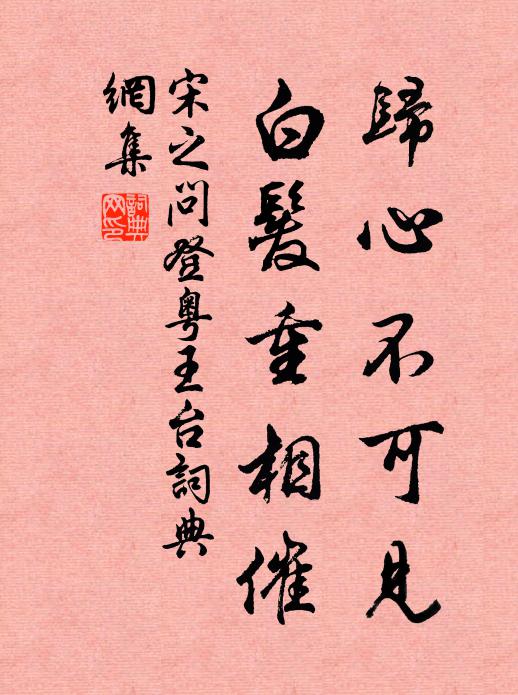 歸心不可見
白髮重相催
宋之問登粵王台詞典
網集
詞典
网印